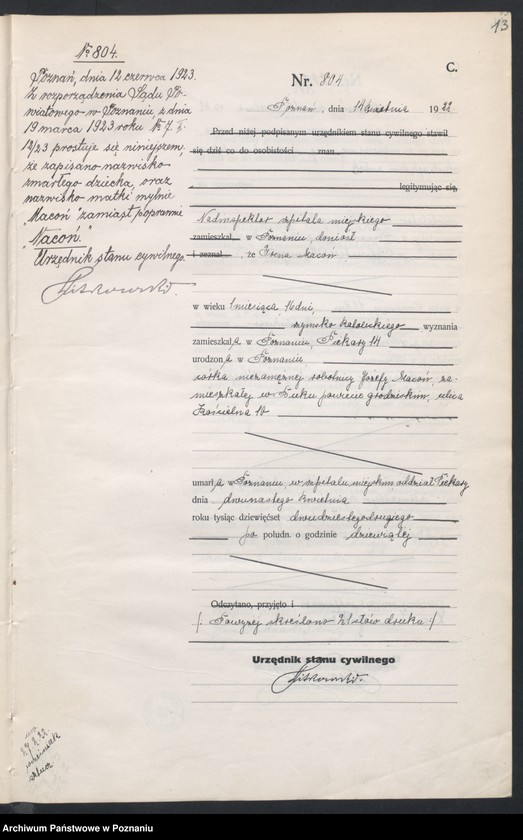 13
C.
№ 804.
Poznań, dnia 12 czerwca 1923.
Z rozporządzenia Sądu Po-
wiatowego w Poznaniu z dnia
19 marca 1923 roku № 7
12/23 prostuje się niniejszem,
że zapisano nazwisko
zmarłego dziecka, oraz
nazwisko matki mylnie
"Macoń" zamiast poprawnie
"Nacoń."
Urzędnik stanu cywilnego.
Nr. 804
Poznań, dnia 14 kwietnia 1922
Przed niżej podpisanym urzędnikiem stanu cywilnego stawił
się dziś co do osobistości znan
legitymując się,
Nadinspektor szpitala miejskiego
zamieszkał w Poznaniu, doniósł
i zeznał, że Irena Macoń
w wieku 1 miesiąca 16 dni,
rzymsko katolickiego wyznania
zamieszkała w Poznaniu, Piekary 14
urodzona w Poznaniu
córka niezamężnej robotnicy Józefy Macoń, za-
mieszkałej w Buku powiecie grodziskim, ulica
Kościelna 10
umarła w Poznaniu, w szpitalu miejskim oddział Piekary
dnia dwunastego kwietnia
roku tysiąc dziewięćset dwudziestegodrugiego
po połudn. o godzinie dziewiątej
Odczytano, przyjęto i
(: Powyżej skreślono 21 słów druku :)
Urzędnik stanu cywilnego
Archiwum Państwowe w Poznaniu